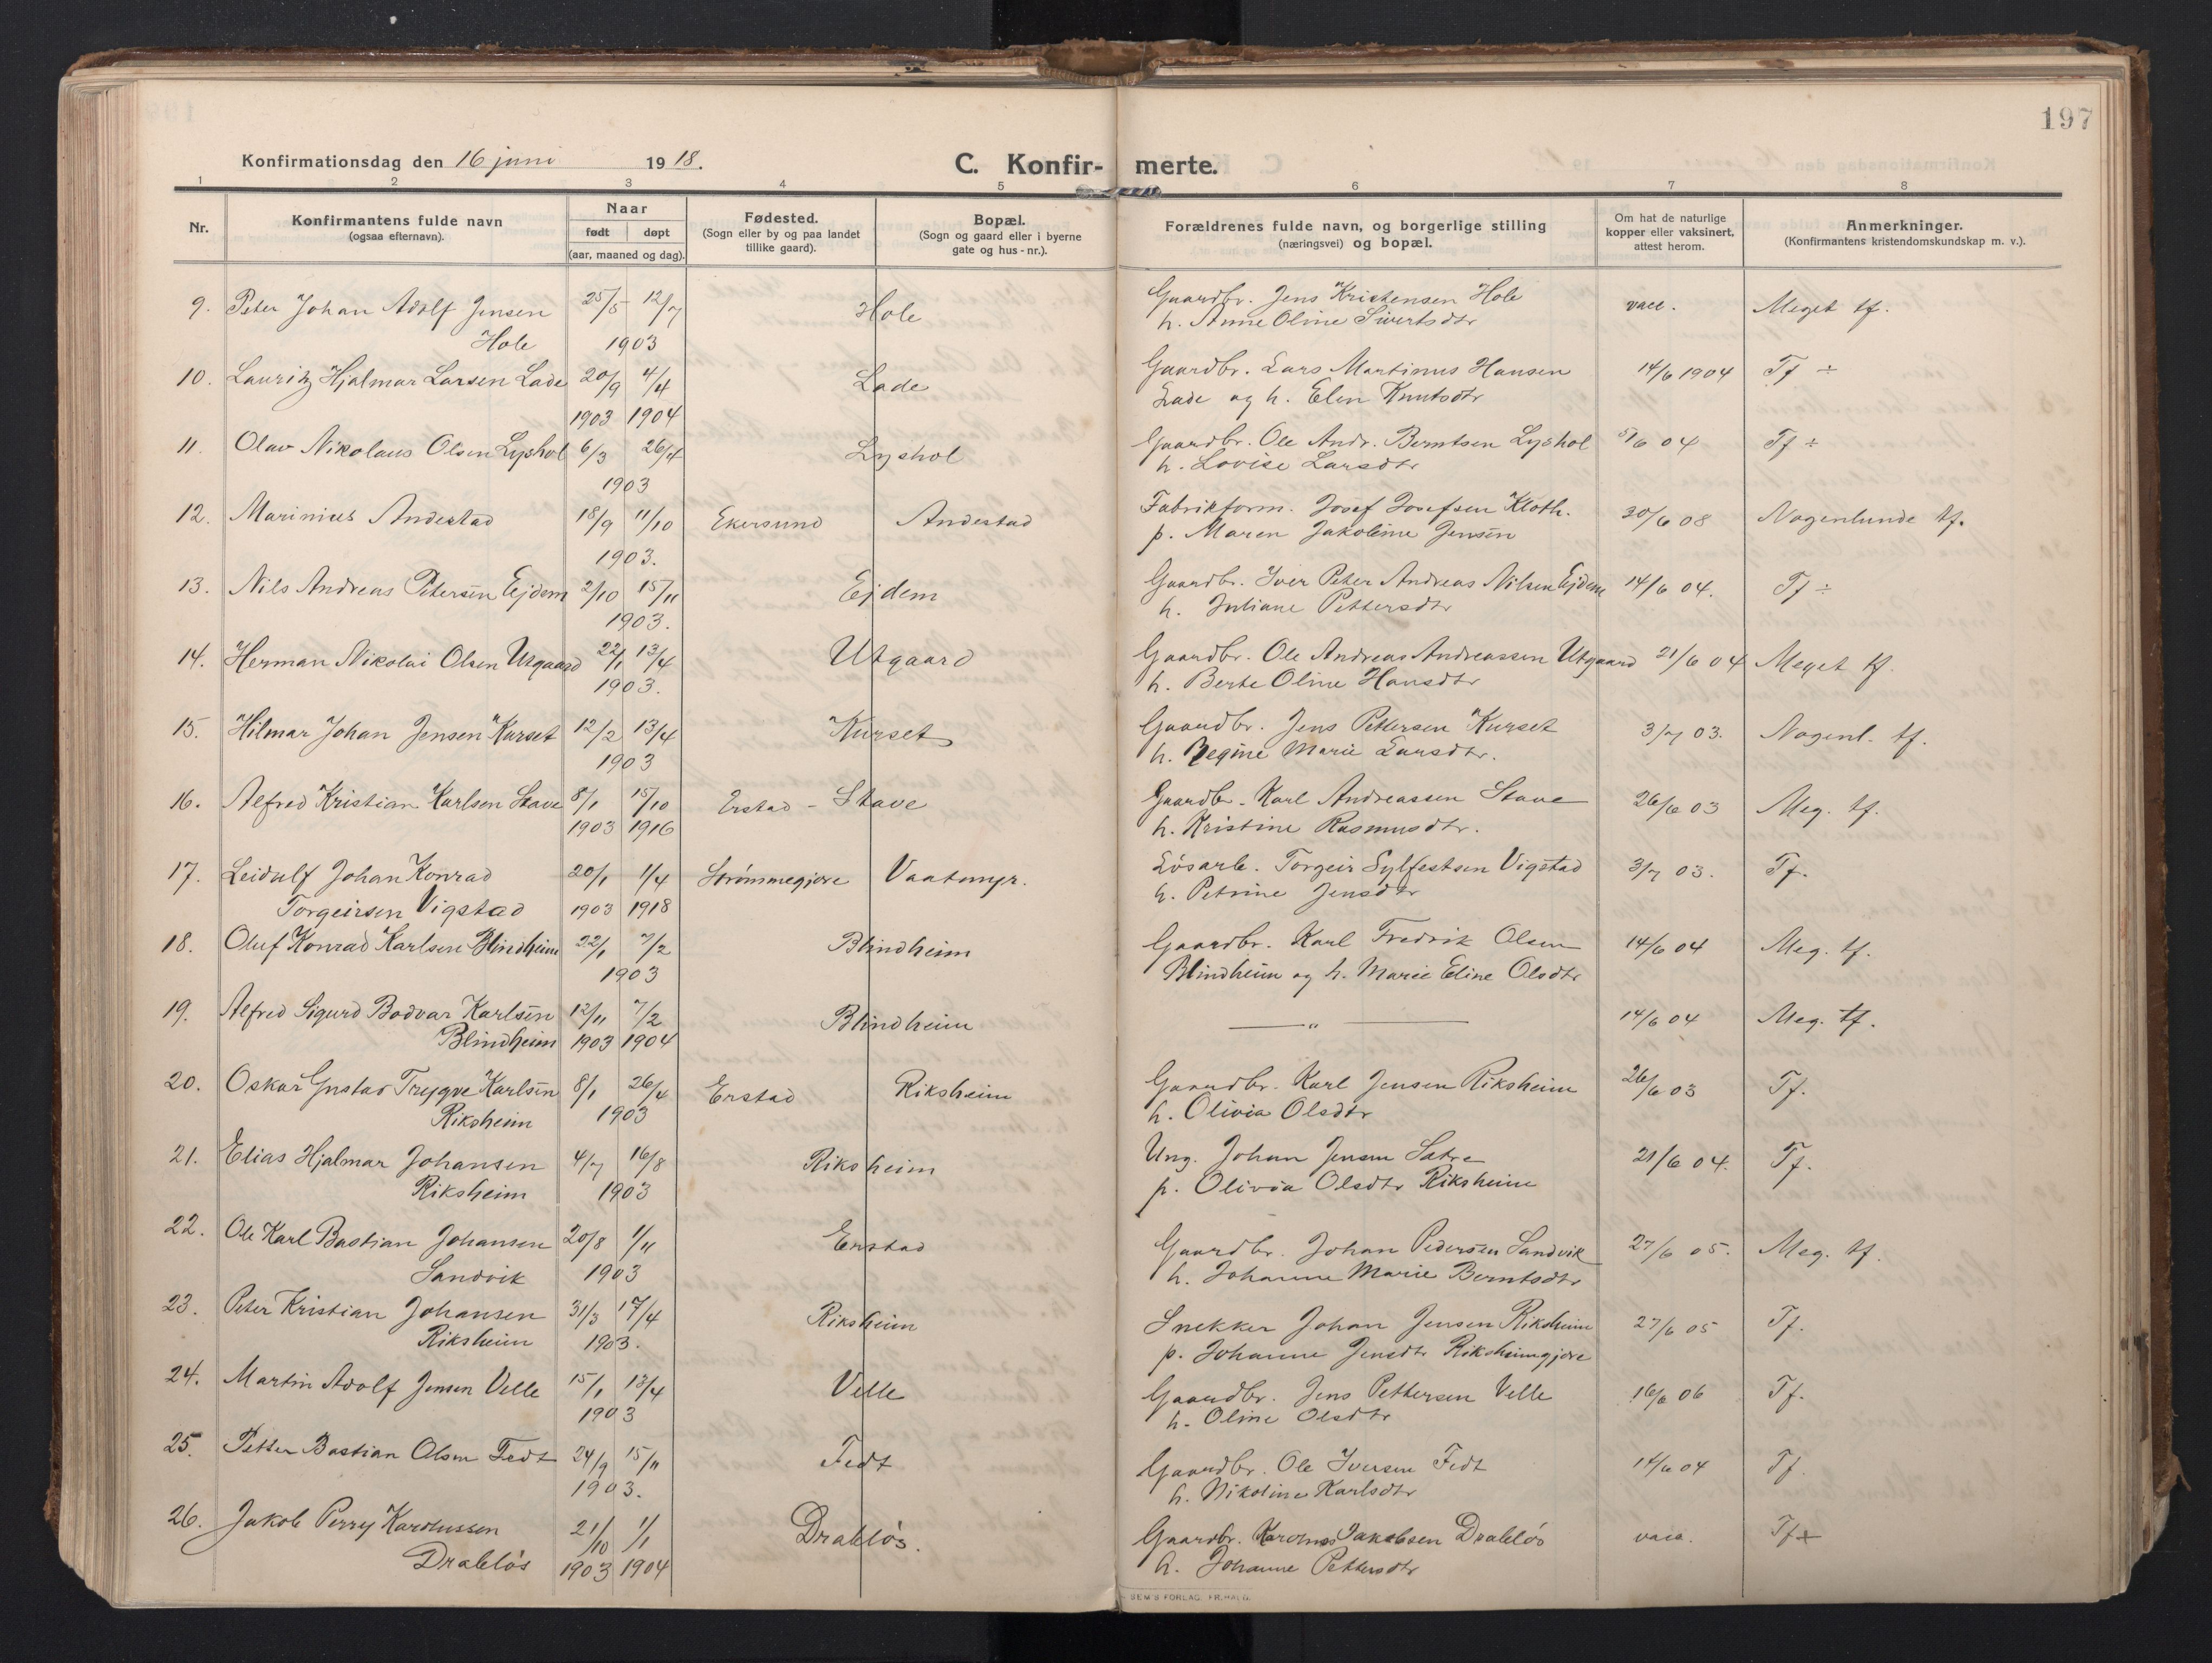 197
Konfirmationsdag den 16 juni 1918.
C. Konfir- merte.
1 2 3 4 5 6 7 8
Nr.
Konfirmantens fulde navn
(ogsaa efternavn).
Naar
født døpt
(aar, maaned og dag).
Fødested.
(Sogn eller by og paa landet
tillike gaard).
Bopæl.
(Sogn og gaard eller i byerne
gate og hus-nr.).
Forældrenes fulde navn, og borgerlige stilling
(næringsvei) og bopæl.
Om hat de naturlige
kopper eller vaksinert,
attest herom.
Anmerkninger.
(Konfirmantens kristendomskundskap m. v.).
9. Peter Johan Adolf Jensen 25/5 12/7 Hole Gaardbr. Jens Kristensen Hole vacc. Meget tf.
Hole 1903 h. Anne Oline Sivertsdtr
10. Lauritz Hjalmar Larsen Lade 20/9 4/4 Lade Gaardbr. Lars Martinus Hansen 14/6 1904 Tf ÷
1903 1904 Lade og h. Elen Knutsdtr
11. Olav Nikolaus Olsen Lyshol 6/3 26/4 Lyshol Gaardbr. Ole Andr. Berntsen Lyshol /6 04 Tf ÷
1903 h. Lovise Larsdtr
12. Marinius Andestad 18/9 11/10 Ekersund Andestad Fabrikform. Josef Josefsen Kloth. 30/6 08 Nogenlunde tf.
1903. p. Maren Jakobine Jensen
13. Nils Andreas Petersen Ejdem 2/10 15/11 Ejdem Gaardbr. Iver Peter Andreas Nilsen Ejdem 14/6 04. Tf ÷
1903. h. Juliane Pettersdtr
14. Herman Nikolai Olsen Utgaard 22/1 13/4 Utgaard Gaardbr. Ole Andreas Andreassen Utgaard 21/6 04 Meget tf.
1903. h. Berte Oline Hansdtr
15. Hilmar Johan Jensen Kurset 12/2 13/4 Kurset Gaardbr. Jens Pettersen Kurset 3/7 03. Nogenl. tf.
1903 h. Regine Marie Larsdtr.
16. Alfred Kristian Karlsen Stave 8/1 15/10 Erstad - Stave Gaardbr. Karl Andreassen Stave 26/6 03 Meg. tf.
1903 1916 h. Kristine Rasmusdtr.
17. Leidulf Johan Konrad 20/1 1/4 Strømmegjære Vaatmyr. Løsarb. Torgeir Sylfestsen Vigstad 3/7 03. Tf.
Torgeirsen Vigstad 1903 1918 h. Petrine Jensdtr
18. Oluf Konrad Karlsen Blindheim 22/1 7/2 Blindheim Gaardbr. Karl Fredrik Olsen 14/6 04 Meg. tf.
1903 Blindheim og h. Marie Eline Olsdtr
19. Alfred Sigurd Bodvar Karlsen 12/11 7/2 Blindheim — " — 14/6 04 Meg. tf.
Blindheim 1903 1904
20. Oskar Gustav Trygve Karlsen 8/1 26/4 Erstad Riksheim Gaardbr. Karl Jensen Riksheim 26/6 03 Tf.
Riksheim 1903 h. Olivia Olsdtr
21. Elias Hjalmar Johansen 4/7 16/8 Riksheim Ung. Johan Jensen Satre 21/6 04. Tf.
Riksheim 1903 p. Olivia Olsdtr Riksheim
22. Ole Karl Bastian Johansen 20/8 1/11 Erstad Gaardbr. Johan Pedersen Sandvik 27/6 05. Meg. tf.
Sandvik 1903 h. Johanne Marie Berntsdtr
23. Peter Kristian Johansen 31/3 17/4 Riksheim Snekker Johan Jensen Riksheim 27/6 05 Tf.
Riksheim 1903. p. Johanne Jensdtr Riksheimgjære
24. Martin Adolf Jensen Velle 15/1 13/4 Velle Gaardbr. Jens Pettersen Velle 16/6 06 Tf.
1903 h. Oline Olsdtr
25. Petter Bastian Olsen Fedt 24/9 15/11 Fedt Gaardbr. Ole Iversen Fedt 14/6 04 Tf.
1903. h. Nikoline Karlsdtr
26. Jakob Perry Karolussen 21/10 1/1 Drabløs. Gaardbr. Karolus Jakobsen Drabløs vacc. Tf +
Drabløs 1903 1904 h. Johanne Pettersdtr
SEM'S FORLAG, FR.HALD.